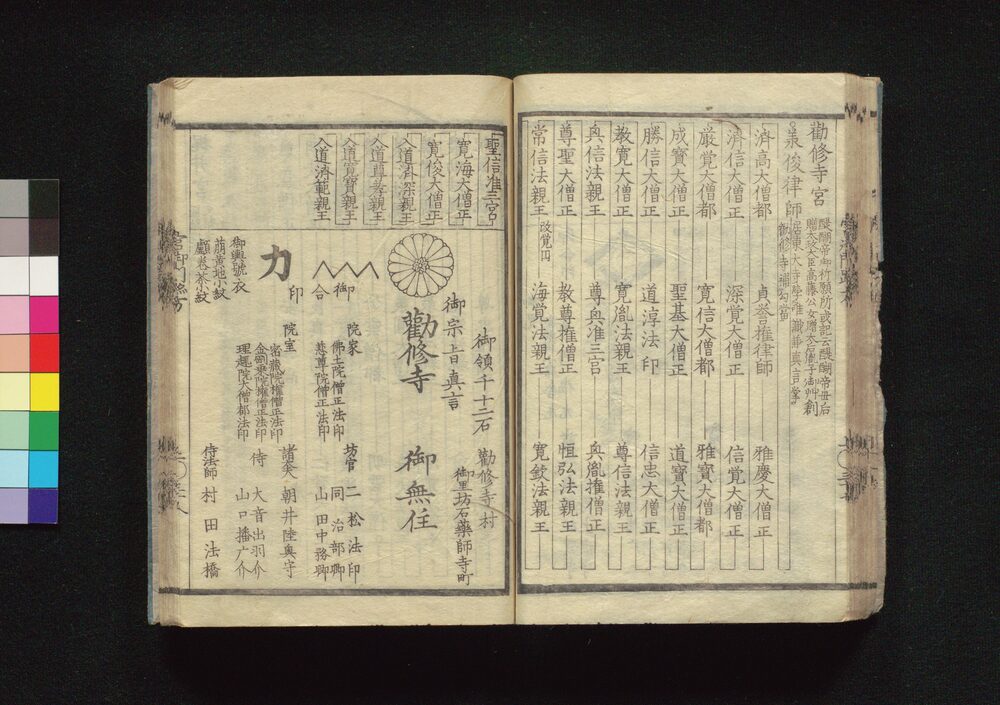 勸修寺宮
泉俊律師
醍醐帝御祈願所或記云醍醐帝母后
贈太
濟高大僧都 貞誉権律師 雅慶大僧正
濟信大僧正 深覚大僧正 信覚大僧正
厳覚大僧都 寛信大僧都 雅寳大僧都
成寳大僧正 聖基大僧正 道寳大僧正
勝信大僧正 道淳法印 信忠大僧正
教寛大僧正 寛胤法親王 尊信法親王
興信法親王 尊興准三宮 興胤権僧正
尊聖大僧正 教尊権僧正 恒弘法親王
常信法親王 改覚円 海覚法親王 寛欽法親王
聖信准三宮
寛海大僧正
寛俊大僧正
入道濟深親王
入道尊孝親王
入道寛寳親王
入道濟範親王
御領千十二石 勸修寺村
御里坊石藥師寺町
御宗旨真言
勸修寺 御無住
御合印
力
御輿舁衣
萠黄地小紋
院家
佛土院僧正法印
慈尊院僧正法印
院室
密蔵院権僧正法印
金剛乗院権僧正法印
理趣院大僧都法印
坊官 二松法印
同 治部卿
山田中務卿
諸大夫 朝井陸奥守
侍 大音出羽介
山口播广介
侍法師 村田法橋